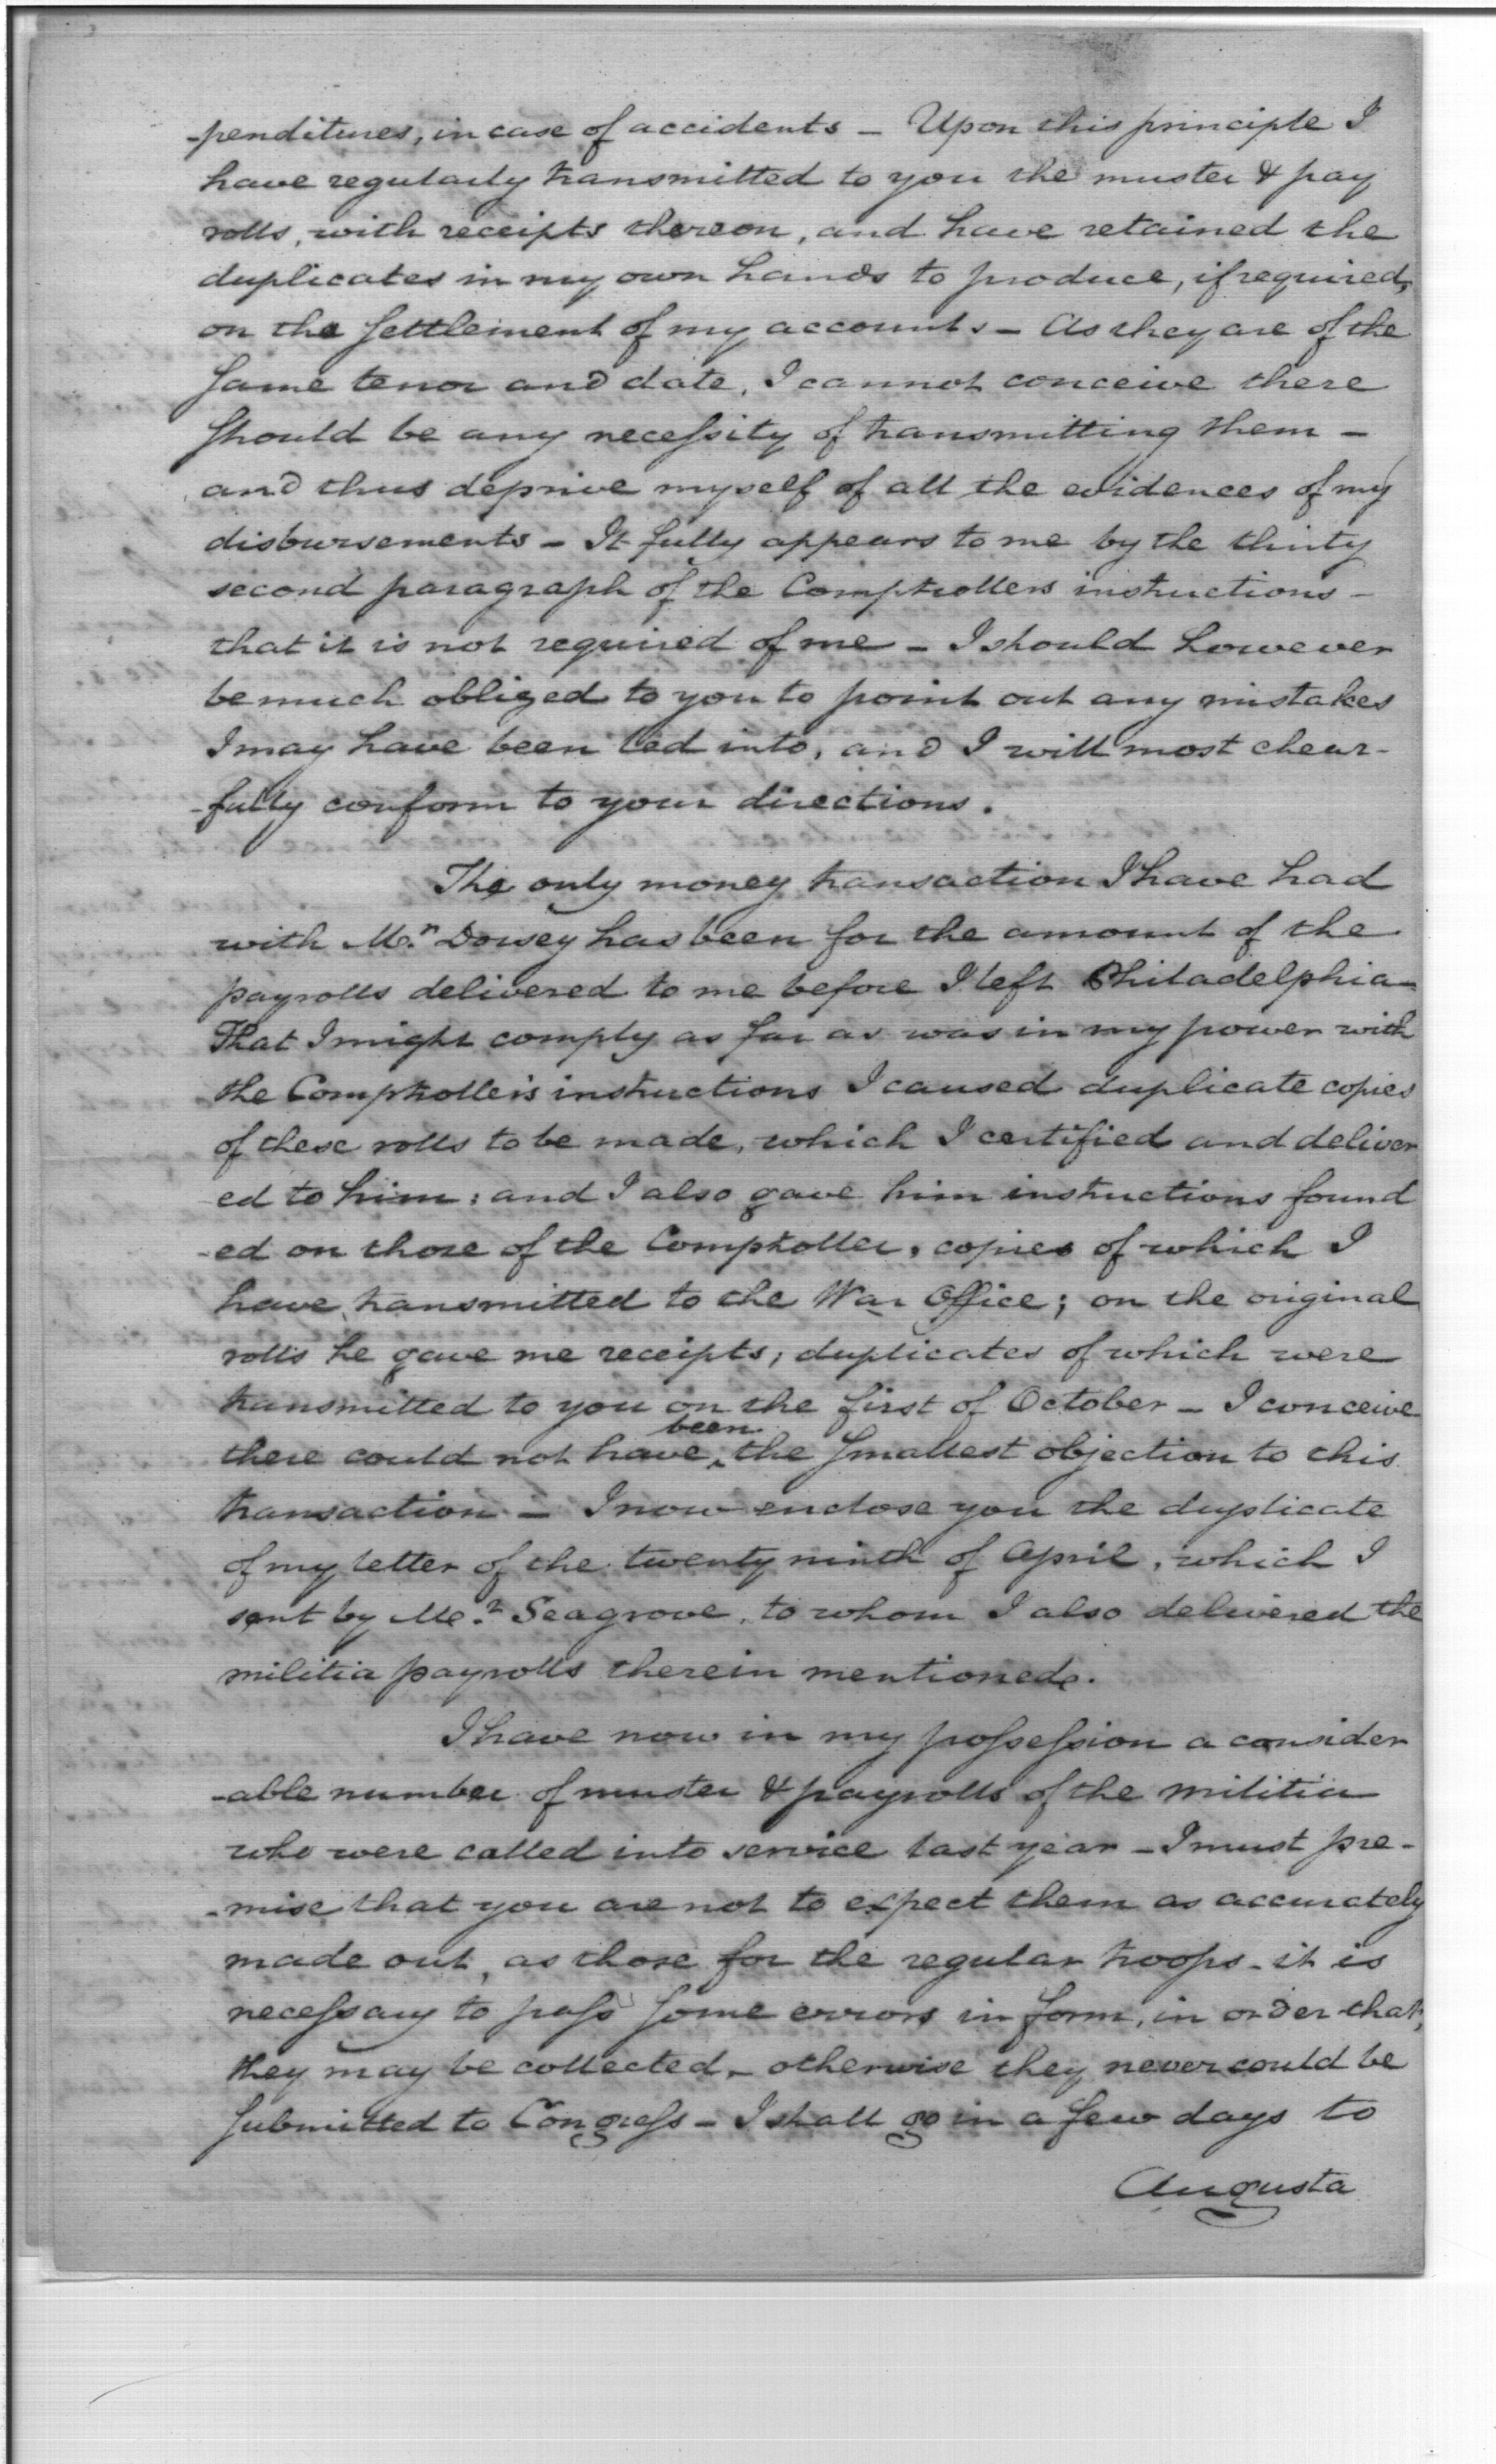 -penditures, in case of accidents - Upon this principle I
have regularly transmitted to you the muster & pay
rolls, with receipts thereon, and have retained the
duplicates in my own hands to produce, if required,
on the settlement of my accounts - As they are of the
same tenor and date, I cannot conceive there
should be any necessity of transmitting them -
and thus deprive myself of all the evidences of my
disbursements - It fully appears to me by the thirty
second paragraph of the Comptrollers instructions -
that it is not required of me - I should however
be much obliged to you to point out any mistakes
I may have been led into, and I will most chear-
-fully conform to your directions.
The only money transaction I have had
with Mr. Dorsey has been for the amount of the
payrolls delivered to me before I left Philadelphia -
That I might comply as far as was in my power with
the Comptroller's instructions I caused duplicate copies
of these rolls to be made, which I certified and deliver
ed to him: and I also gave him instructions found
-ed on those of the Comptroller, copies of which I
have transmitted to the War Office; on the original
rolls he gave me receipts; duplicates of which were
transmitted to you on the first of October - I conceive
there could not have been the smallest objection to this
transaction - I now enclose you the duplicate
of my letter of the twenty ninth of April, which I
sent by Mr. Seagrove, to whom I also delivered the
militia payrolls therein mentioned.
I have now in my possession a consider
-able number of muster & payrolls of the militia
who were called into service last year - I must pre-
-mise that you are not to expect them as accurately
made out, as those for the regular troops - it is
necessary to pass some errors in form, in order that,
they may be collected - otherwise they never could be
submitted to Congress - I shall go in a few days to
Augusta